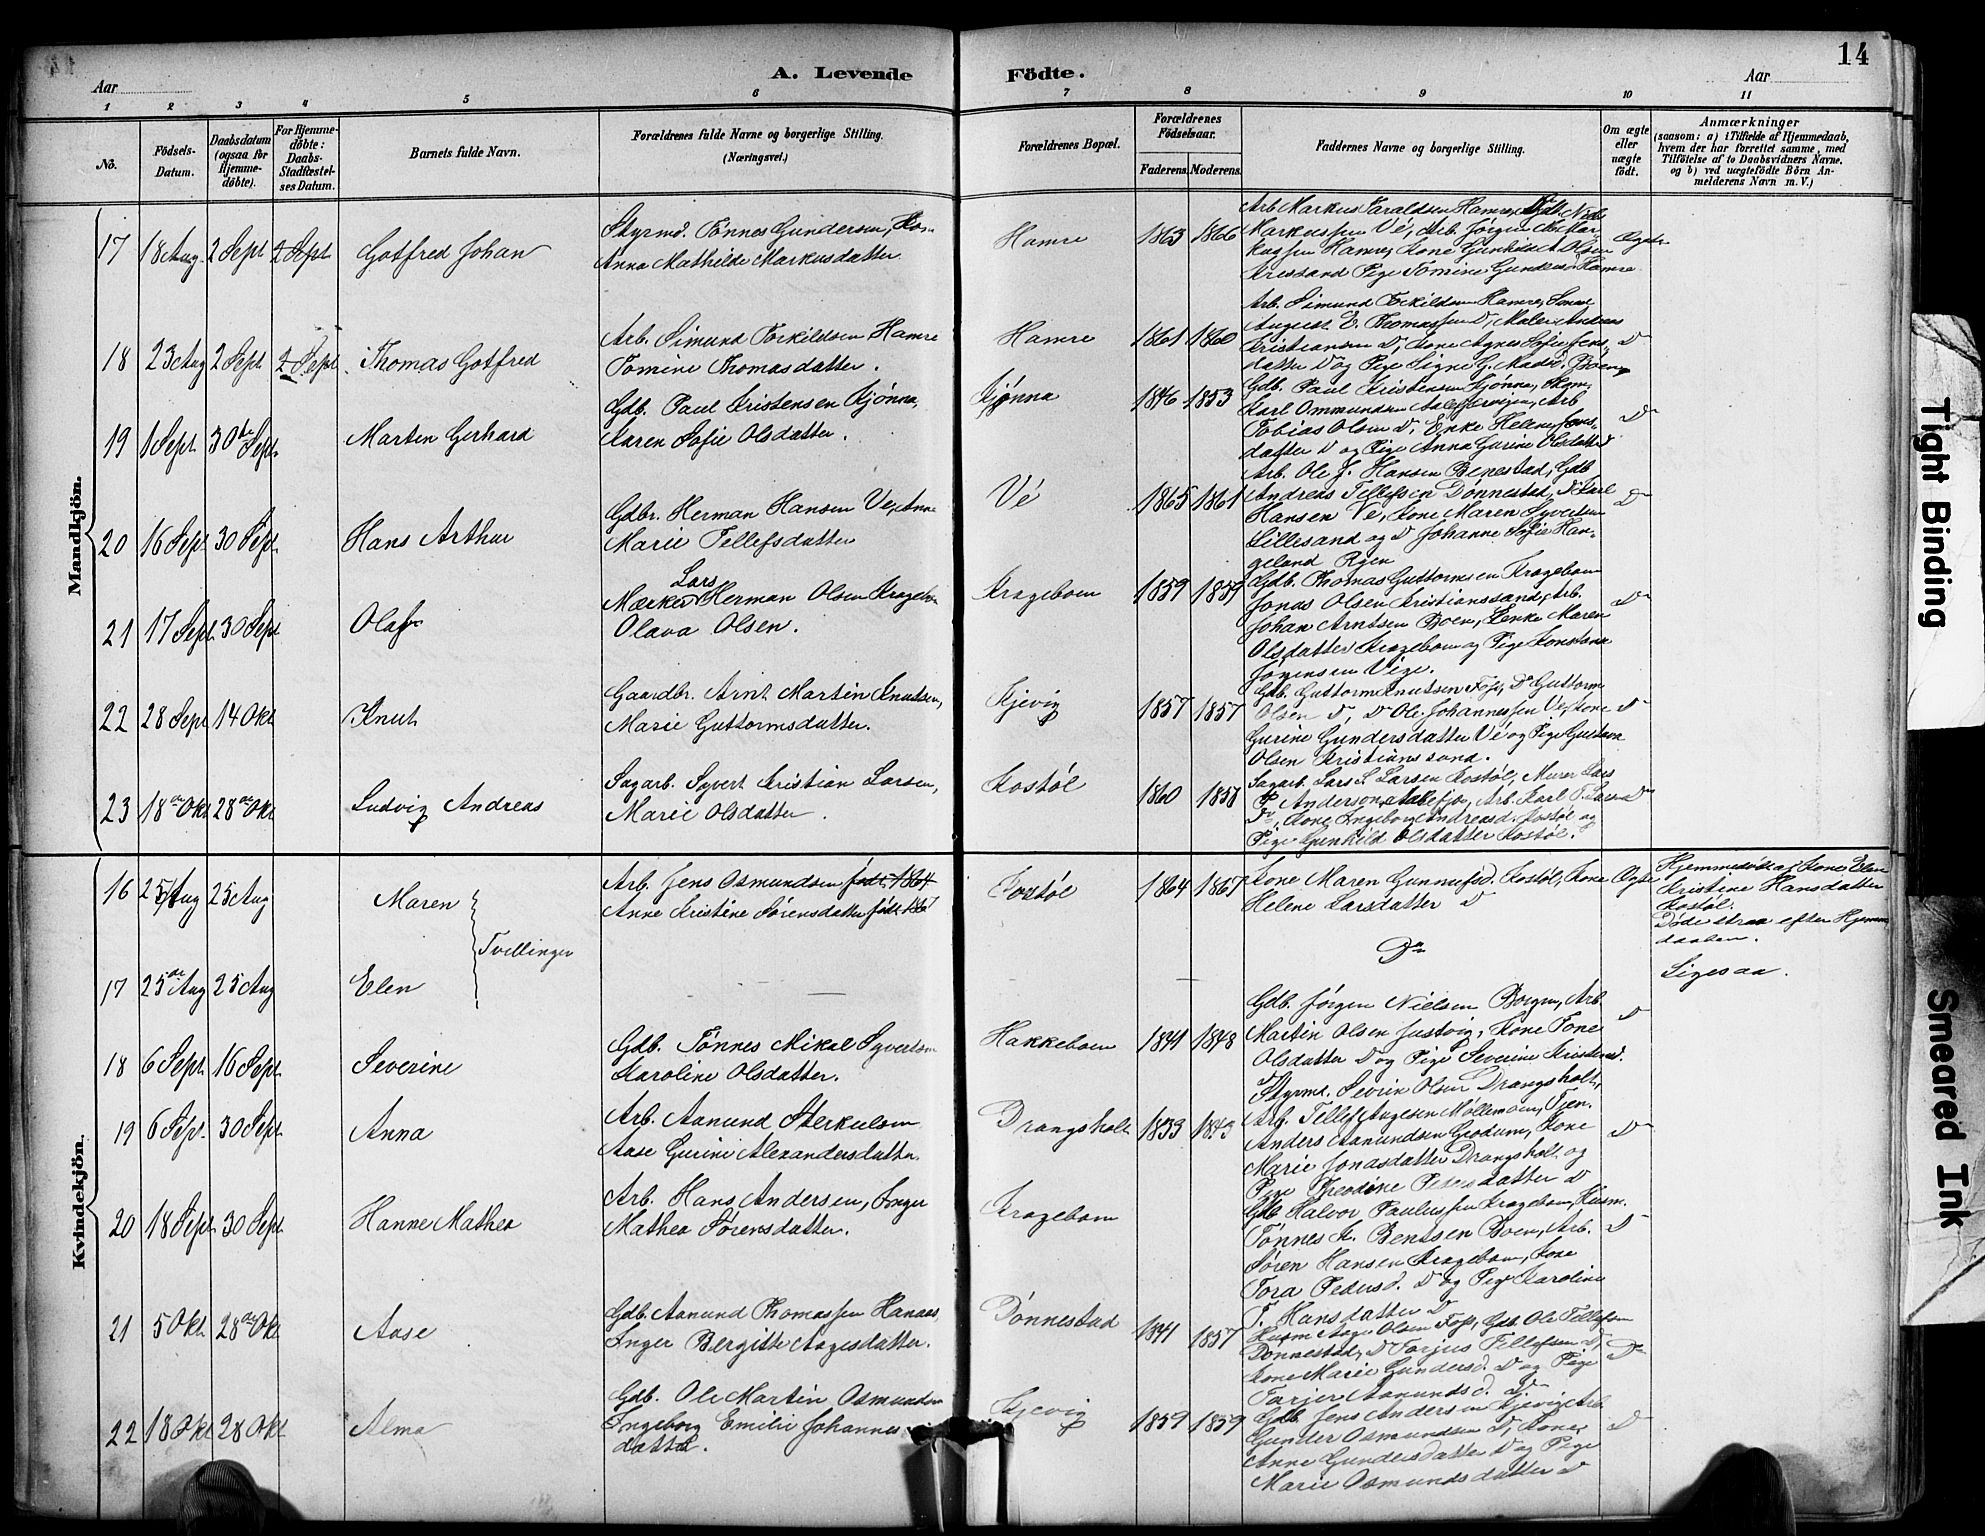 14
A. Levende Födte.
Aar
Aar
1 2 3 4 5 6 7 8 9 10 11
No.
Födsels-Datum.
Daabsdatum (ogsaa for Hjemme-döbte).
For Hjemme-döbte: Daabs-Stadfæstel-ses Datum.
Barnets fulde Navn.
Forældrenes fulde Navne og borgerlige Stilling.
(Næringsvei.)
Forældrenes Bopæl.
Forældrenes Födselsaar.
Faderens. Moderens.
Faddernes Navne og borgerlige Stilling.
Om ægte eller uægte födt.
Anmærkninger
(saasom: a) i Tilfælde af Hjemmedaab,
hvem der har forrettet samme, med
Tilföielse af to Daabsvidners Navne.
og b) ved uægtefödte Börn An-
melderens Navn m. V.)
Mandkjön.
17 18 Aug. 2 Sept 2 Sept Gotfred Johan
Styrmd. Tønnes Gundersen,
Anna Mathilde Markusdatter.
Hamre 1863 1866
Arb Markus Taraldsen Hamre,
Markussen Vé, Arb. Jørgen Mar-
kussen Hamre, Kone Gunhild A Olsen
Krissand Pige Tomine Gundersd Hamre
Ægte
18 23 Aug 2 Sept 2 Sept Thomas Gotfred
Arb. Simund Torkildsen Hamre
Tomine Thomasdatter.
Hamre 1861 1860
Arb. Simund Torkildsen Hamre,
August E. Thomassen D, Maler Andreas
Kristiansen D, Kone Agnes Sofie Jens-
datter D og Pige Signe G. Madsd. Boen
D
19 1 Sept 30te Sept. Marten Gerhard
Gdb. Paul Kristensen Kjønna,
Karen Sofie Olsdatter.
Kjønna 1846 1853
Gdb. Paul Kristensen Kjønna,
Karl Ommundsen Aalefjærvigen, Arb
Tobias Olsen D, Enke Helene Jens-
datter D og Pige Anna Gurine Olsdatter
D
20 16 Sept 30 Sept. Hans Arthur
Gdbr. Herman Hansen Ve, Anne
Marie Tellefsdatter
Vé 1865 1861
Arb. Ole J. Hansen Benestad, Gdb
Andreas Tellefsen Dønnestad, D Karl
Hansen Ve, Kone Maren Syvertsen
Lillesand og D Johanne Sofie Han-
geland
D
21 17 Sept. 30 Sept Olaf
Lars
Mækler Herman Olsen Kragebo
Olava Olsen.
Krageboen 1859 1859
Gdb. Thomas Guttormsen Krageboen
Jonas Olsen Kristianssand, Arb.
Johan Arntsen Boen, Enke Maren
Olsdatter Krageboen og Pige Konstanse
Jörgensen Vige.
D
22 28 Sept 14 Okt Knut
Gaardbr. Arnt Martin Knutsen,
Marie Guttormsdatter.
Kjevig 1857 1857
Gdb. Guttorm Knutsen Foss, D Guttorm
Olsen D, D Ole Johannessen Ve, Kone
Gurine Gundersdatter Vé og Pige Gustava
Olsen Kristianssand.
D
23 18de Okt 28de Okt Ludvig Andreas
Sagarb. Syvert Kristian Larsen,
Marie Olsdatter.
Kostøl 1860 1858
Sagarb. Lars S. Larsen Kostøl, Murer Lars
P. Anderson Aalefjær, Arb. Karl T. Larsen
D, Kone Ingeborg Andreasd. Kostøl og
Pige Gunhild Olsdatter Kostøl.
D
Kvindekjön.
16 25 Aug 25 Aug Maren
Tvillinger
Arb. Jens Osmundsen født 1864
Anne Kristine Sørensdatter født 1867
Kostøl 1864 1867
Kone Maren Gunnufsd. Kostøl, Kone
Helene Larsdatter D
Ægte
Hjemmedøbt af Kone Elen
Kristine Hansdatter
Kostøl.
Døde strax efter Hjemme
daaben.
17 25de Aug 25 Aug Elen
Do
Ligesaa.
18 6 Sept 16 Sept. Severine
Gdb. Tønnes Mikal Syvertsen
Karoline Olsdatter.
Hakkeboen 1841 1848
Gdb. Jørgen Nielsen Borgen, Arb.
Martin Olsen Justvig, Kone Tone
Olsdatter D og Pige Severine Kristensd.
D
19 6 Sept. 30 Sept. Anna
Arb. Aanund Sterkulsen
Aase Gurine Alexandersdatter.
Drangsholt 1833 1843
Styrmd. Severin Olsen Drangsholt,
Arb. Tellef Aagesen Møllemoen, Tjen.
Anders Aanundsen Grødum, Kone
Marie Jonasdatter Drangsholt og
Pige Theodine Petersdatter D
D
20 18 Sept 30 Sept. Hanne Mathea
Arb. Hans Andersen, Inger
Mathea Sørensdatter.
Krageboen
Gdb Halvor Paulussen Krageboen, Husm.
Tønnes K. Bentsen Boen, Arb.
Søren Hansen Krageboen, Kone
Tora Pedersd. D og Pige Karoline
T. Hansdatter D
D
21 5 Okt. 28de Okt Aase
Gdb. Aanund Thomassen Hanaas,
Inger Bergitte Aagesdatter.
Dønnestad 1841 1857
Husm Aage Olsen Foss, Gdb. Ole Tellefsen
Dønnestad, D Torjus Tellefsen D,
Kone Marie Gundersd. D og Pige
Tarjer Aanundsd. D
D
22 18 Okt 28 Okt. Alma
Gdb. Ole Martin Osmundsen
Ingeborg Emilie Johannes-
datter.
Kjevig 1859 1859
Gdb. Jens Andersen Kjevig, Arb.
Gunder Osmundsen D, Kone
Anne Gundersdatter D og Pige
Marie Osmundsdatter D
D
Tight Binding
Smeared Ink